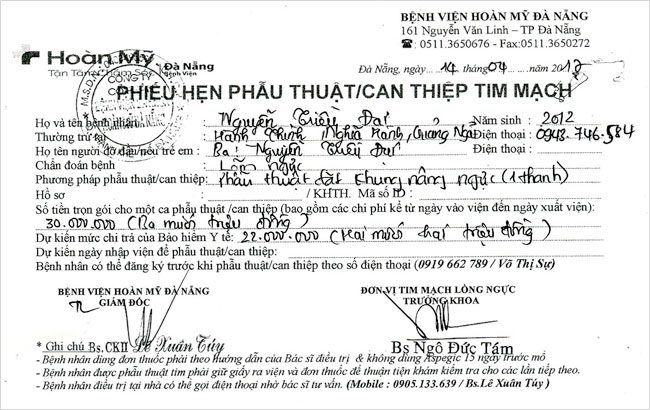 BỆNH VIỆN HOÀN MỸ ĐÀ NẴNG
161 Nguyễn Văn Linh – TP Đà Nẵng
☎: 0511.3650676 - Fax:0511.3650272
Hoàn Mỹ Đà Nẵng
Tận Tâm Chăm Sóc Bệnh Viện
Đà Nẵng, ngày.....14.....tháng 04.....năm 2017
PHIẾU HẸN PHẪU THUẬT/CAN THIỆP TIM MẠCH
Họ và tên bệnh nhân: Nguyễn Triều Đại Năm sinh : 2012
Thường trú tại : Hành Thịnh, Nghĩa Hành, Quảng Ngãi Điện thoại : 0948.746.584
Họ tên người đỡ đầu/nếu trẻ em : Ba: Nguyễn Triều Điện thoại :
Chẩn đoán bệnh : Lõm ngực
Phương pháp phẫu thuật/can thiệp: phẫu thuật đặt khung nâng ngực (1 thanh)
Hồ sơ : / KHTH. Mã số ID :
Số tiền trọn gói cho một ca phẫu thuật /can thiệp (bao gồm các chi phí kể từ ngày vào viện đến ngày xuất viện):
30.000.000 (Ba mươi triệu đồng)
Dự kiến mức chi trả của Bảo hiểm Y tế: 22.000.000 (Hai mươi hai triệu đồng)
Dự kiến ngày nhập viện để phẫu thuật/can thiệp:
Bệnh nhân có thể đăng ký trước khi phẫu thuật/can thiệp theo số điện thoại (0919 662 789 / Võ Thị Sự)
BỆNH VIỆN HOÀN MỸ ĐÀ NẴNG
GIÁM ĐỐC
ĐƠN VỊ TIM MẠCH LỒNG NGỰC
TRƯỞNG KHOA
* Ghi chú Bs.CKII Lê Xuân Túy
Bs Ngô Đức Tám
- Bệnh nhân dùng đơn thuốc phải theo hướng dẫn của Bác sĩ điều trị & không dùng Aspegic 15 ngày trước mổ
- Bệnh nhân được phẫu thuật tim phải giữ giấy ra viện và đơn thuốc để thuận tiện khám kiểm tra cho các lần tiếp theo.
- Bệnh nhân điều trị tại nhà có thể gọi điện thoại nhờ bác sĩ tư vấn. (Mobile : 0905.133.639 / Bs.Lê Xuân Túy )